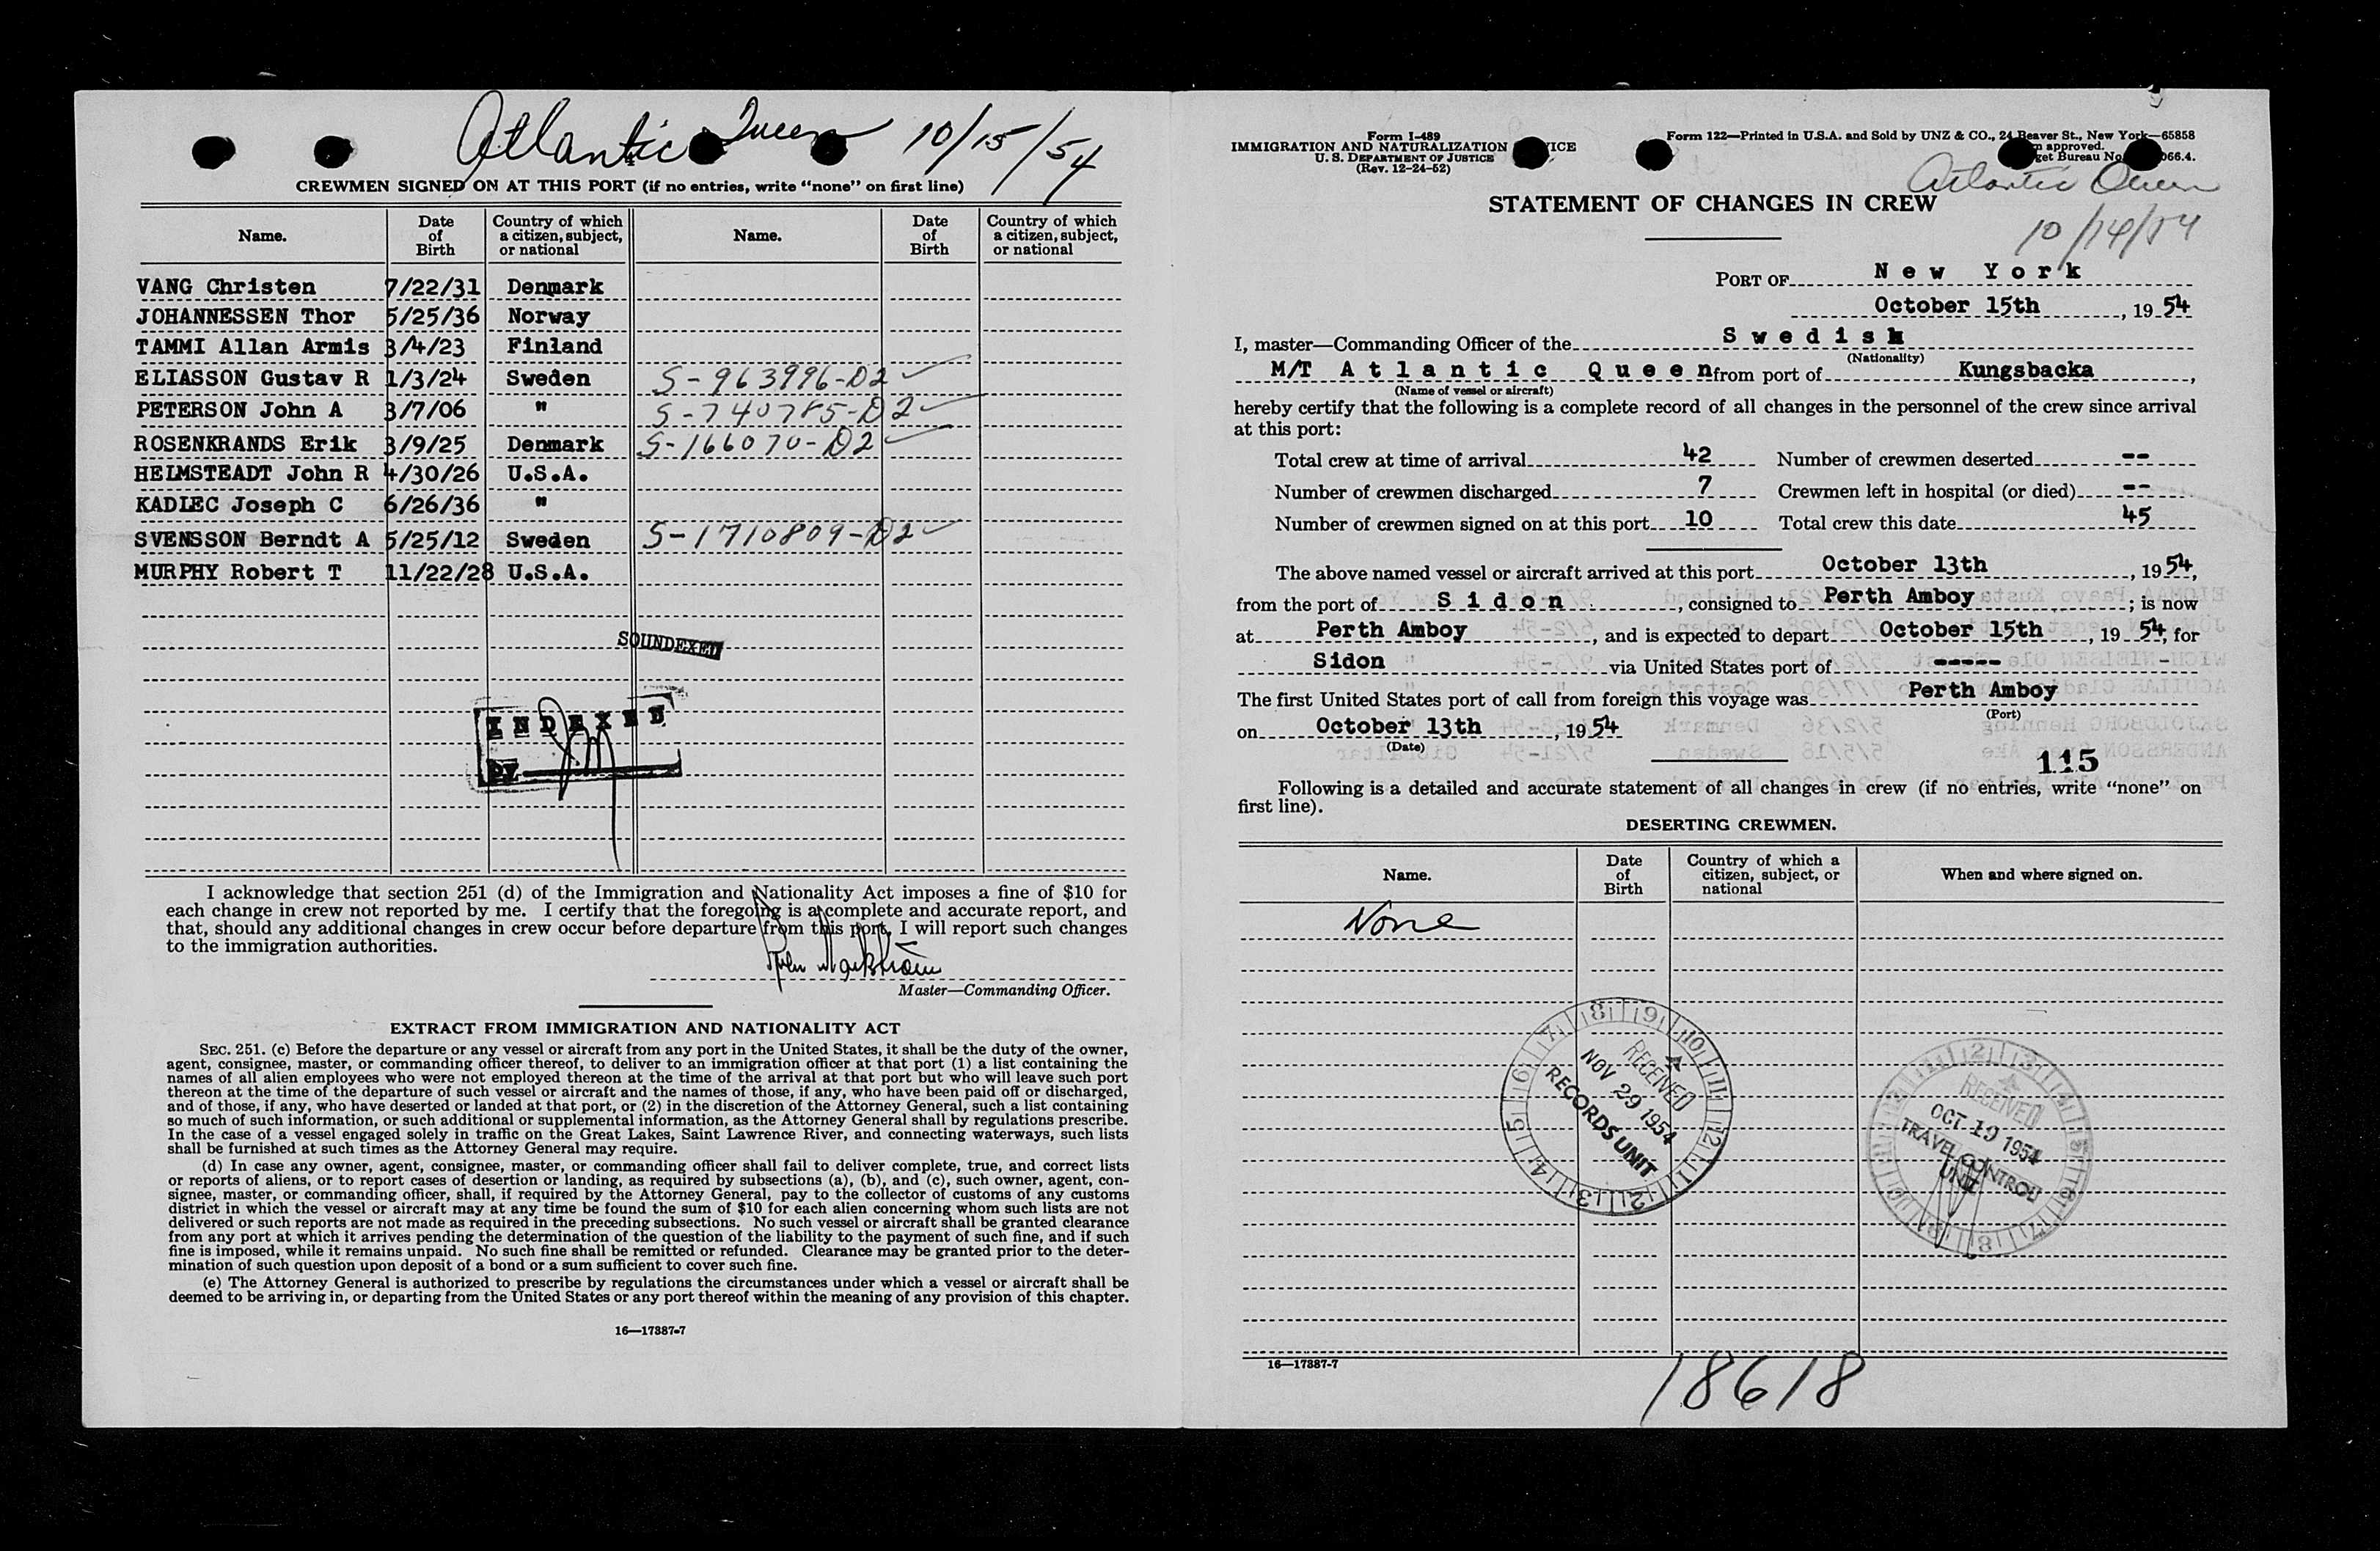 Atlantic Queen 10/15/54
CREWMEN SIGNED ON AT THIS PORT (if no entries, write "none" on first line)
Name. Date of Birth Country of which a citizen, subject, or national Name. Date of Birth Country of which a citizen, subject, or national
VANG Christen 7/22/31 Denmark
JOHANNESSEN Thor 5/25/36 Norway
TAMMI Allan Armis 3/4/23 Finland
ELIASSON Gustav R 1/3/24 Sweden S-963996-D2 ✓
PETERSON John A 3/7/06 " S-740785-D2 ✓
ROSENKRANDS Erik 3/9/25 Denmark S-166070-D2 ✓
HELMSTEADT John R 4/30/26 U.S.A.
KADLEC Joseph C 6/26/36 "
SVENSSON Berndt A 5/25/12 Sweden S-1710809-D2 ✓
MURPHY Robert T 11/22/28 U.S.A.
SOUNDEXED
INDEXED
BY
I acknowledge that section 251 (d) of the Immigration and Nationality Act imposes a fine of $10 for
each change in crew not reported by me. I certify that the foregoing is a complete and accurate report, and
that, should any additional changes in crew occur before departure from this port, I will report such changes
to the immigration authorities.
Master—Commanding Officer.
EXTRACT FROM IMMIGRATION AND NATIONALITY ACT
SEC. 251. (c) Before the departure or any vessel or aircraft from any port in the United States, it shall be the duty of the owner,
agent, consignee, master, or commanding officer thereof, to deliver to an immigration officer at that port (1) a list containing the
names of all alien employees who were not employed thereon at the time of the arrival at that port but who will leave such port
thereon at the time of the departure of such vessel or aircraft and the names of those, if any, who have been paid off or discharged,
and of those, if any, who have deserted or landed at that port, or (2) in the discretion of the Attorney General, such a list containing
so much of such information, or such additional or supplemental information, as the Attorney General shall by regulations prescribe.
In the case of a vessel engaged solely in traffic on the Great Lakes, Saint Lawrence River, and connecting waterways, such lists
shall be furnished at such times as the Attorney General may require.
(d) In case any owner, agent, consignee, master, or commanding officer shall fail to deliver complete, true, and correct lists
or reports of aliens, or to report cases of desertion or landing, as required by subsections (a), (b), and (c), such owner, agent, con-
signee, master, or commanding officer, shall, if required by the Attorney General, pay to the collector of customs of any customs
district in which the vessel or aircraft may at any time be found the sum of $10 for each alien concerning whom such lists are not
delivered or such reports are not made as required in the preceding subsections. No such vessel or aircraft shall be granted clearance
from any port at which it arrives pending the determination of the question of the liability to the payment of such fine, and if such
fine is imposed, while it remains unpaid. No such fine shall be remitted or refunded. Clearance may be granted prior to the deter-
mination of such question upon deposit of a bond or a sum sufficient to cover such fine.
(e) The Attorney General is authorized to prescribe by regulations the circumstances under which a vessel or aircraft shall be
deemed to be arriving in, or departing from the United States or any port thereof within the meaning of any provision of this chapter.
16—17387-7
Form I-489
IMMIGRATION AND NATURALIZATION
U. S. DEPARTMENT OF JUSTICE
(Rev. 12-24-52)
Form 122—Printed in U.S.A. and Sold by UNZ & CO., 24 Beaver St., New York—65858
approved.
Atlantic Queen
10/14/54
STATEMENT OF CHANGES IN CREW
PORT OF New York
October 15th, 1954
I, master—Commanding Officer of the Swedish
(Nationality)
M/T Atlantic Queen from port of Kungsbacka,
(Name of vessel or aircraft)
hereby certify that the following is a complete record of all changes in the personnel of the crew since arrival
at this port:
Total crew at time of arrival 42 Number of crewmen deserted --
Number of crewmen discharged 7 Crewmen left in hospital (or died) --
Number of crewmen signed on at this port 10 Total crew this date 45
The above named vessel or aircraft arrived at this port October 13th, 1954,
from the port of Sidon, consigned to Perth Amboy; is now
at Perth Amboy, and is expected to depart October 15th, 1954, for
Sidon via United States port of -----
The first United States port of call from foreign this voyage was Perth Amboy
(Port)
on October 13th, 1954
(Date)
115
Following is a detailed and accurate statement of all changes in crew (if no entries, write "none" on
first line).
DESERTING CREWMEN.
Name. Date of Birth Country of which a citizen, subject, or national When and where signed on.
None
RECEIVED
NOV 29 1954
RECORDS UNIT
RECEIVED
OCT 19 1954
TRAVEL CONTROL
UNIT
16—17387-7
18618